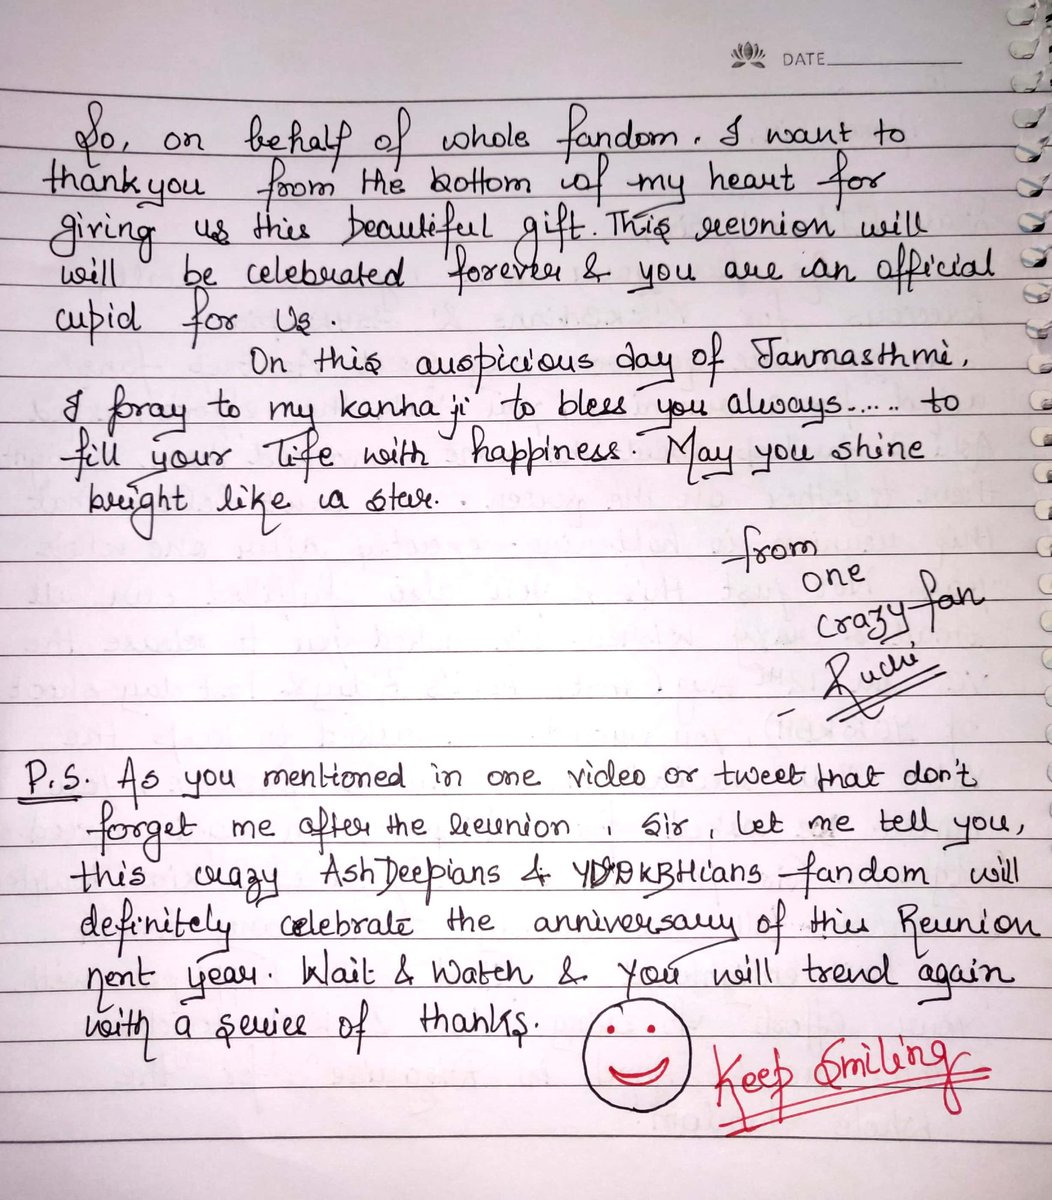 DATE
So, on behalf of whole fandom. I want to
thank you from the bottom of my heart for
giving us this beautiful gift. This reunion will
will be celebrated forever & you are an official
cupid for Us.
On this auspicious day of Janmasthmi,
I pray to my kanha ji to bless you always...... to
fill your life with happiness. May you shine
bright like a star.
from
one
crazy fan
- Ruchi
P.S. As you mentioned in one video or tweet that don't
forget me after the reunion, Sir, let me tell you,
this crazy AshDeepians & YDDKBHians fandom will
definitely celebrate the anniversary of this Reunion
next year. Wait & Watch & you will trend again
with a series of thanks.
Keep Smiling